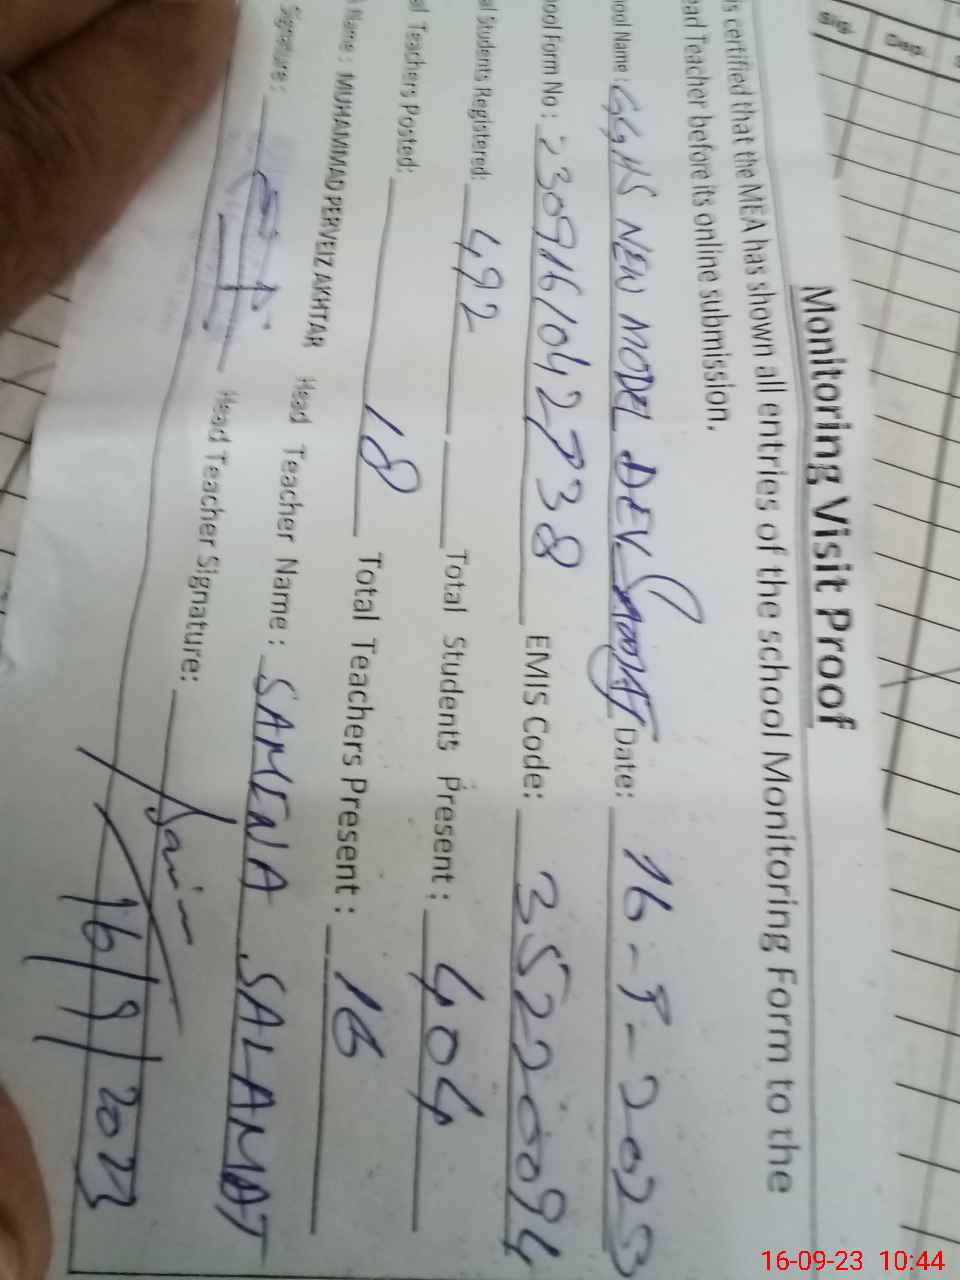 Sig. Dep.
Monitoring Visit Proof
is certified that the MEA has shown all entries of the school Monitoring Form to the
ead Teacher before its online submission.
hool Name : GGHS NEW MODEL DEV Date: 16-9-2023
hool Form No : 230916/042738 EMIS Code: 35220094
al Students Registered: 492 Total Students Present : 404
al Teachers Posted: 18 Total Teachers Present : 16
Name : MUHAMMAD PERVEIZ AKHTAR Head Teacher Name : SAMENA SALAMAT
Signature: Head Teacher Signature:
16/9/2023
16-09-23 10:44